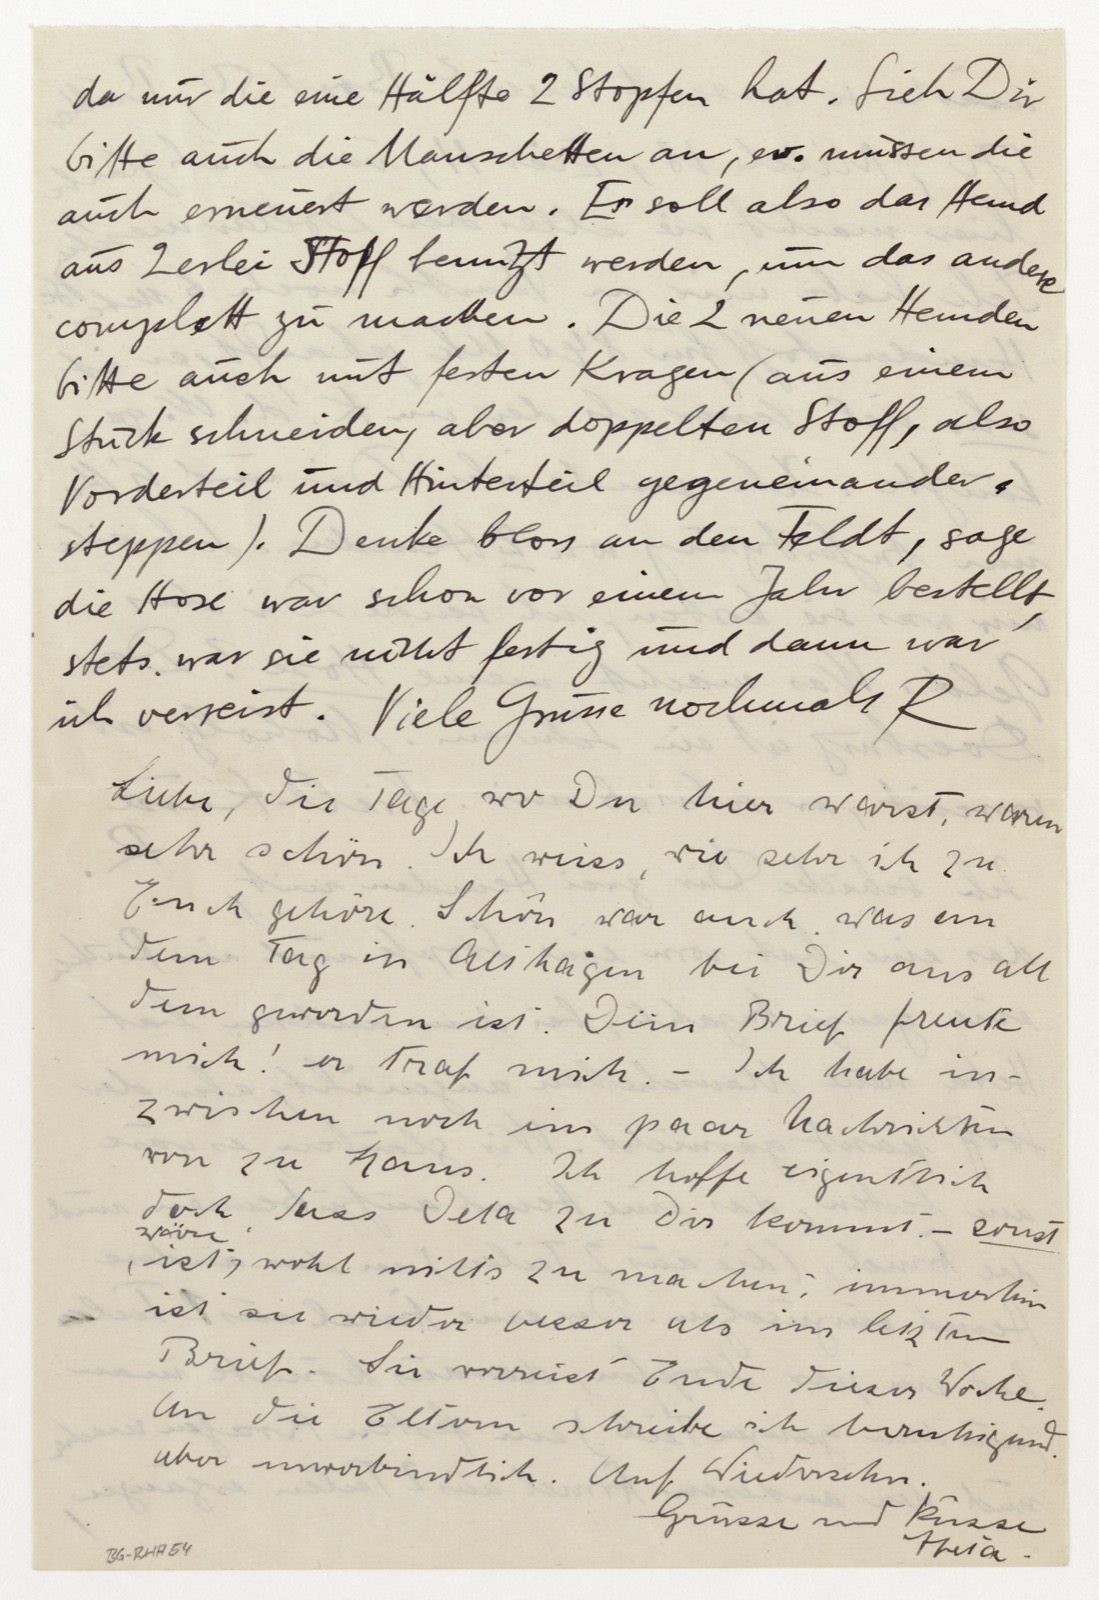 da nur die eine Hälfte 2 Stopfen hat. Sieh Dir
bitte auch die Manschetten an, ev. müssen die
auch erneuert werden. Es soll also das Hemd
aus 2erlei Stoff benutzt werden, um das andere
complett zu machen. Die 2 neuen Hemden
bitte auch mit festen Kragen (aus einem
Stück schneiden, aber doppelten Stoff, also
Vorderteil und Hinterteil gegeneinander-
steppen). Denke bloss an den Feldt, sage
die Hose war schon vor einem Jahr bestellt,
stets war sie nicht fertig und dann war
ich verreist. Viele Grüsse nochmals R
Liebe, die Tage, wo Du hier warst, waren
sehr schön. Ich weiss, wie sehr ich zu
Euch gehöre. Schön war auch, was an
dem Tag in bei Dir aus all
dem geworden ist. Dein Brief freute
mich! er traf mich. – Ich habe in-
zwischen noch ein paar Nachrichten
von zu Haus. Ich hoffe eigentlich
doch, dass zu Dir kommt. – sonst
wäre
(ist) wohl nichts zu machen; immerhin
ist sie wieder besser als im letzten
Brief. Sie verreist Ende dieser Woche.
An die Eltern schreibe ich beruhigend.
aber unverbindlich. Auf Wiedersehn.
Grüsse und Küsse
BG-RHA54